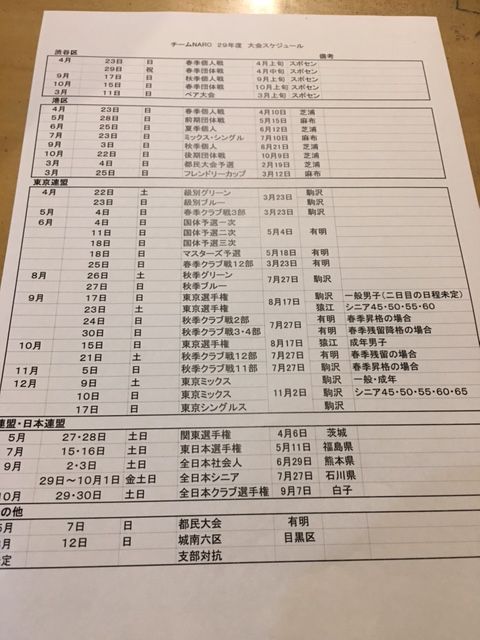 チームNARO 29年度 大会スケジュール
渋谷区 備考
4月 23日 日 春季個人戦 4月上旬 スポセン
29日 祝 春季団体戦 4月中旬 スポセン
9月 17日 日 秋季個人戦 9月上旬 スポセン
10月 15日 日 秋季団体戦 10月上旬 スポセン
3月 11日 日 ペア大会 3月上旬 スポセン
港区
4月 23日 日 春季個人戦 4月10日 芝浦
5月 28日 日 前期団体戦 5月15日 麻布
6月 25日 日 夏季個人 6月12日 芝浦
7月 23日 日 ミックス・シングル 7月10日 麻布
9月 3日 日 秋季個人 8月21日 芝浦
10月 22日 日 後期団体戦 10月9日 芝浦
3月 4日 日 都民大会予選 2月19日 芝浦
3月 25日 日 フレンドリーカップ 3月12日 麻布
東京連盟
4月 22日 土 級別グリーン 3月23日 駒沢
23日 日 級別ブルー 駒沢
5月 4日 日 春季クラブ戦3部 3月23日 駒沢
6月 4日 日 国体予選一次
11日 日 国体予選二次 5月4日 有明
18日 日 国体予選三次
18日 日 マスターズ予選 5月18日 有明
25日 日 春季クラブ戦12部 3月23日 有明
8月 26日 土 秋季グリーン 7月27日 駒沢
27日 日 秋季ブルー
9月 17日 日 東京選手権 8月17日 駒沢 一般男子(二日目の日程未定)
23日 土 東京選手権 猿江 シニア45・50・55・60
24日 日 秋季クラブ戦12部 7月27日 有明 春季昇格の場合
30日 日 秋季クラブ戦3・4部 有明 春季残留降格の場合
10月 15日 日 東京選手権 8月17日 猿江 成年男子
21日 土 秋季クラブ戦12部 7月27日 有明 春季残留の場合
11月 5日 日 秋季クラブ戦11部 7月27日 駒沢 春季昇格の場合
12月 9日 土 東京ミックス 11月2日 駒沢 一般・成年
10日 日 東京ミックス 駒沢 シニア45・50・55・60・65
17日 日 東京シングルス 駒沢
連盟・日本連盟
5月 27・28日 土日 関東選手権 4月6日 茨城
7月 15・16日 土日 東日本選手権 5月11日 福島県
9月 2・3日 土日 全日本社会人 6月29日 熊本県
29日～10月1日 金土日 全日本シニア 7月27日 石川県
10月 29・30日 土日 全日本クラブ選手権 9月7日 白子
の他
5月 7日 日 都民大会 有明
月 12日 日 城南六区 目黒区
定 支部対抗